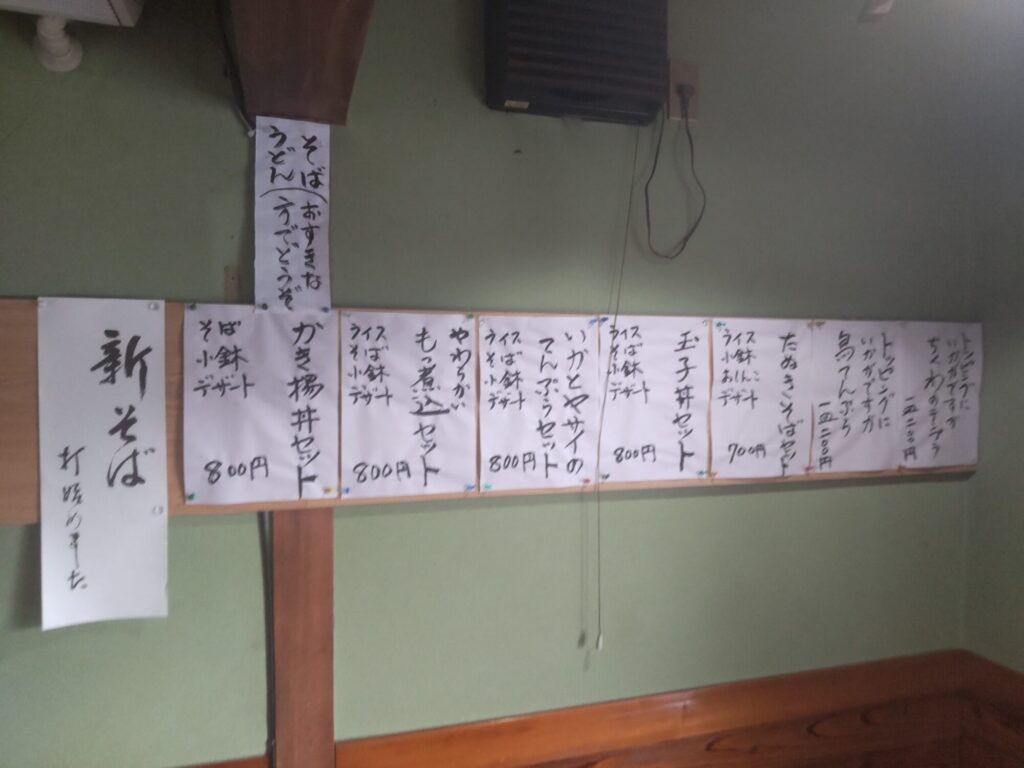 トッピングに
いかがですか
ちくわのテンプラ
一皿二〇〇円
トッピングに
いかがですか
鳥てんぷら
一皿二〇〇円
たぬきそばセット
ライス
小鉢
おしんこ
デザート
700円
玉子丼セット
ライス
そば
小鉢
デザート
800円
いかとヤサイの
てんぷらセット
ライス
そば
小鉢
デザート
800円
やわらかい
もつ煮込セット
ライス
そば
小鉢
デザート
800円
かき揚丼セット
そば
小鉢
デザート
800円
そば
うどん
(おすきな
方でどうぞ
新そば
打始めました。